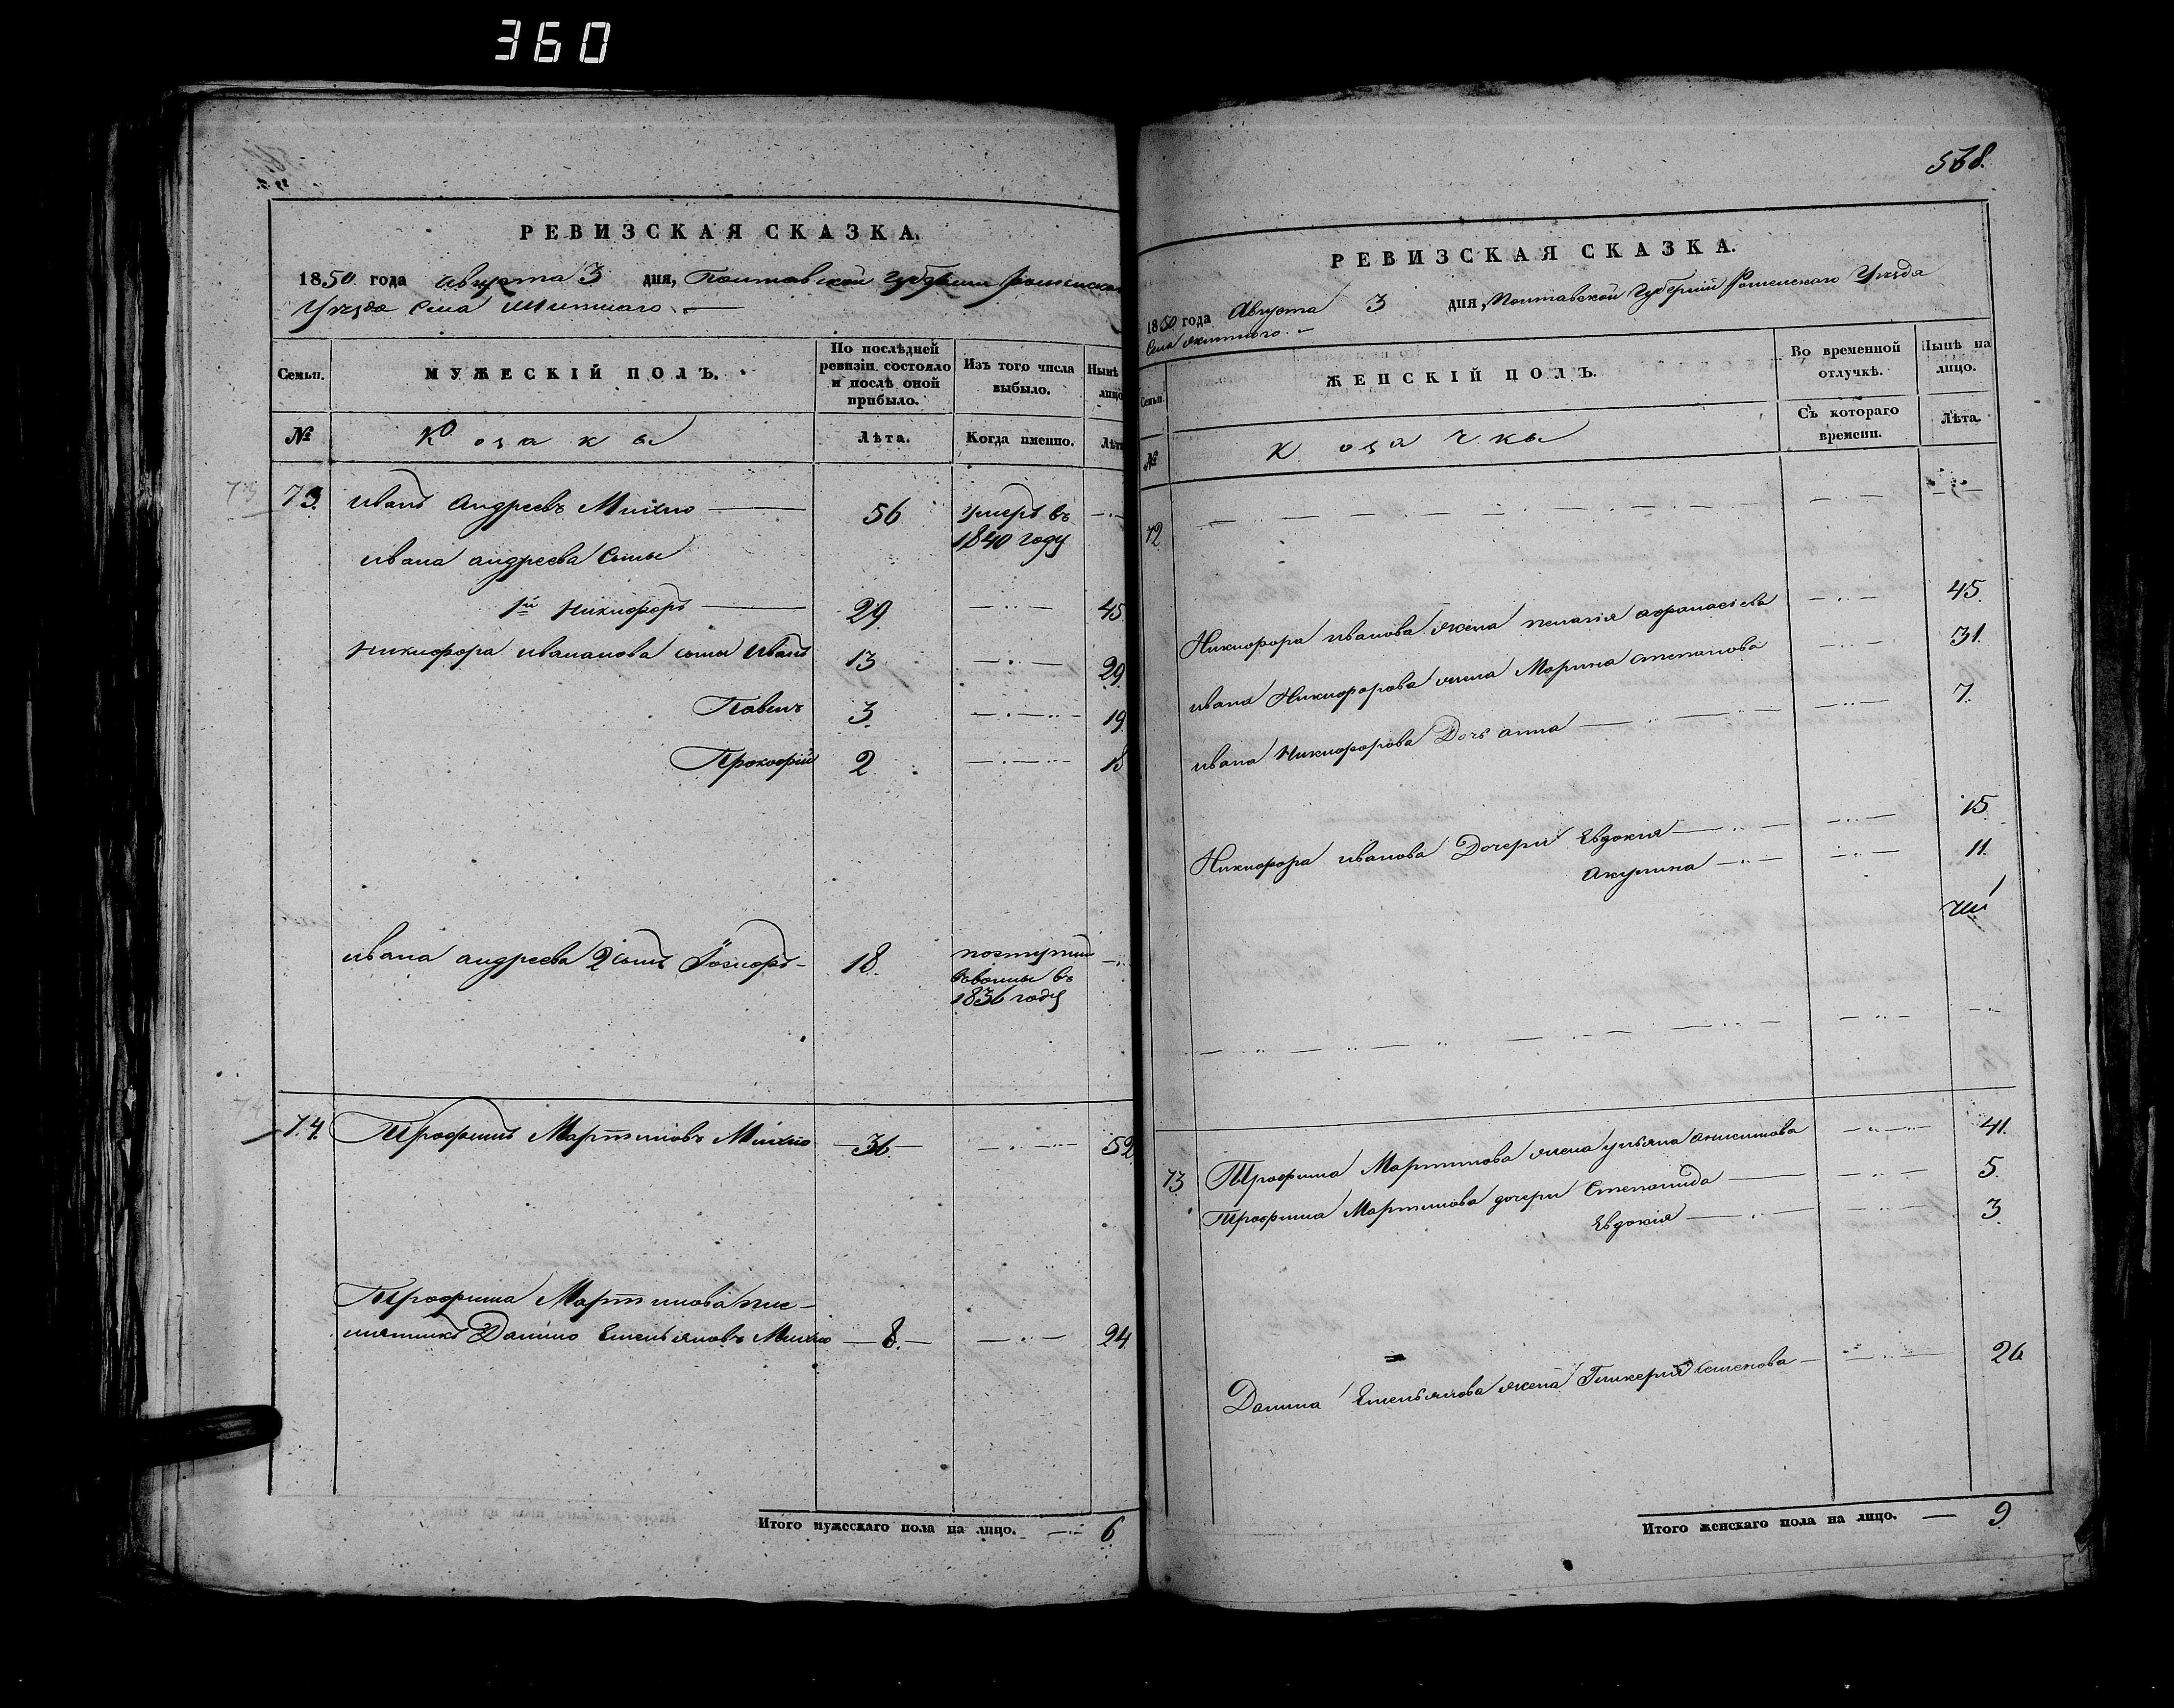 360
РЕВИЗСКАЯ СКАЗКА.
1850 года Августа 3 дня, Полтавской Губернии Роменскаго
Уезда Села
Семьи.
МУЖЕСКІЙ ПОЛЪ.
По послѣдней ревизіи состояло и послѣ оной прибыло.
Изъ того числа выбыло.
Нынѣ лицо
№
Козаки
Лѣта.
Когда именно.
Лѣт
73
73. Иванъ Андреевъ Михно 56 умеръ въ
1840 году
Ивана Андреева Сыны
1й Никифоръ 29 45.
Никифора Ивананова сыны Иванъ 13 29.
Павелъ 3. 19.
Прокофій 2 18
Ивана Андреева 2 сынъ 18.
въ
1836 году
74
74. Трофимъ Мартиновъ Михно 36. 52
Трофима Мартинова пле-
мянникъ Данило Емельяновъ Михно 8. 24.
Итого мужескаго пола на лицо. 6.
568.
РЕВИЗСКАЯ СКАЗКА.
1850 года Августа 3 дня, Полтавской Губерніи Роменскаго Уезда
Села
Семьи.
ЖЕНСКІЙ ПОЛЪ.
Во временной отлучкѣ.
Нынѣ на лицо.
№
Козачки
Съ котораго времени.
Лѣта.
72
Никифора Иванова жена Пелагія Афанасіева 45.
Ивана Никифорова жена Марина Степанова 31.
Ивана Никифорова Дочь Анна 7.
Никифора Иванова Дочери Евдокія 15.
Акулина 11.
73 Трофима Мартинова жена Ульяна Анисимова 41.
Трофима Мартинова дочери Степанида 5.
Евдокія 3.
Данила Емельянова жена Гликерія Семенова 26
Итого женскаго пола на лицо. 9.